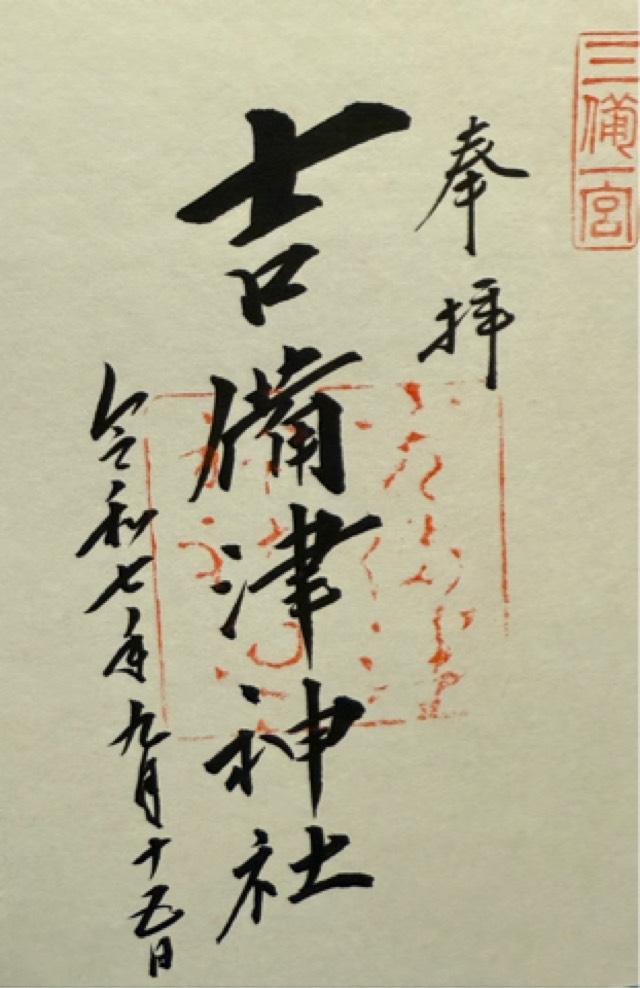 三備一宮
奉拝
吉備津神社
令和七年九月十五日